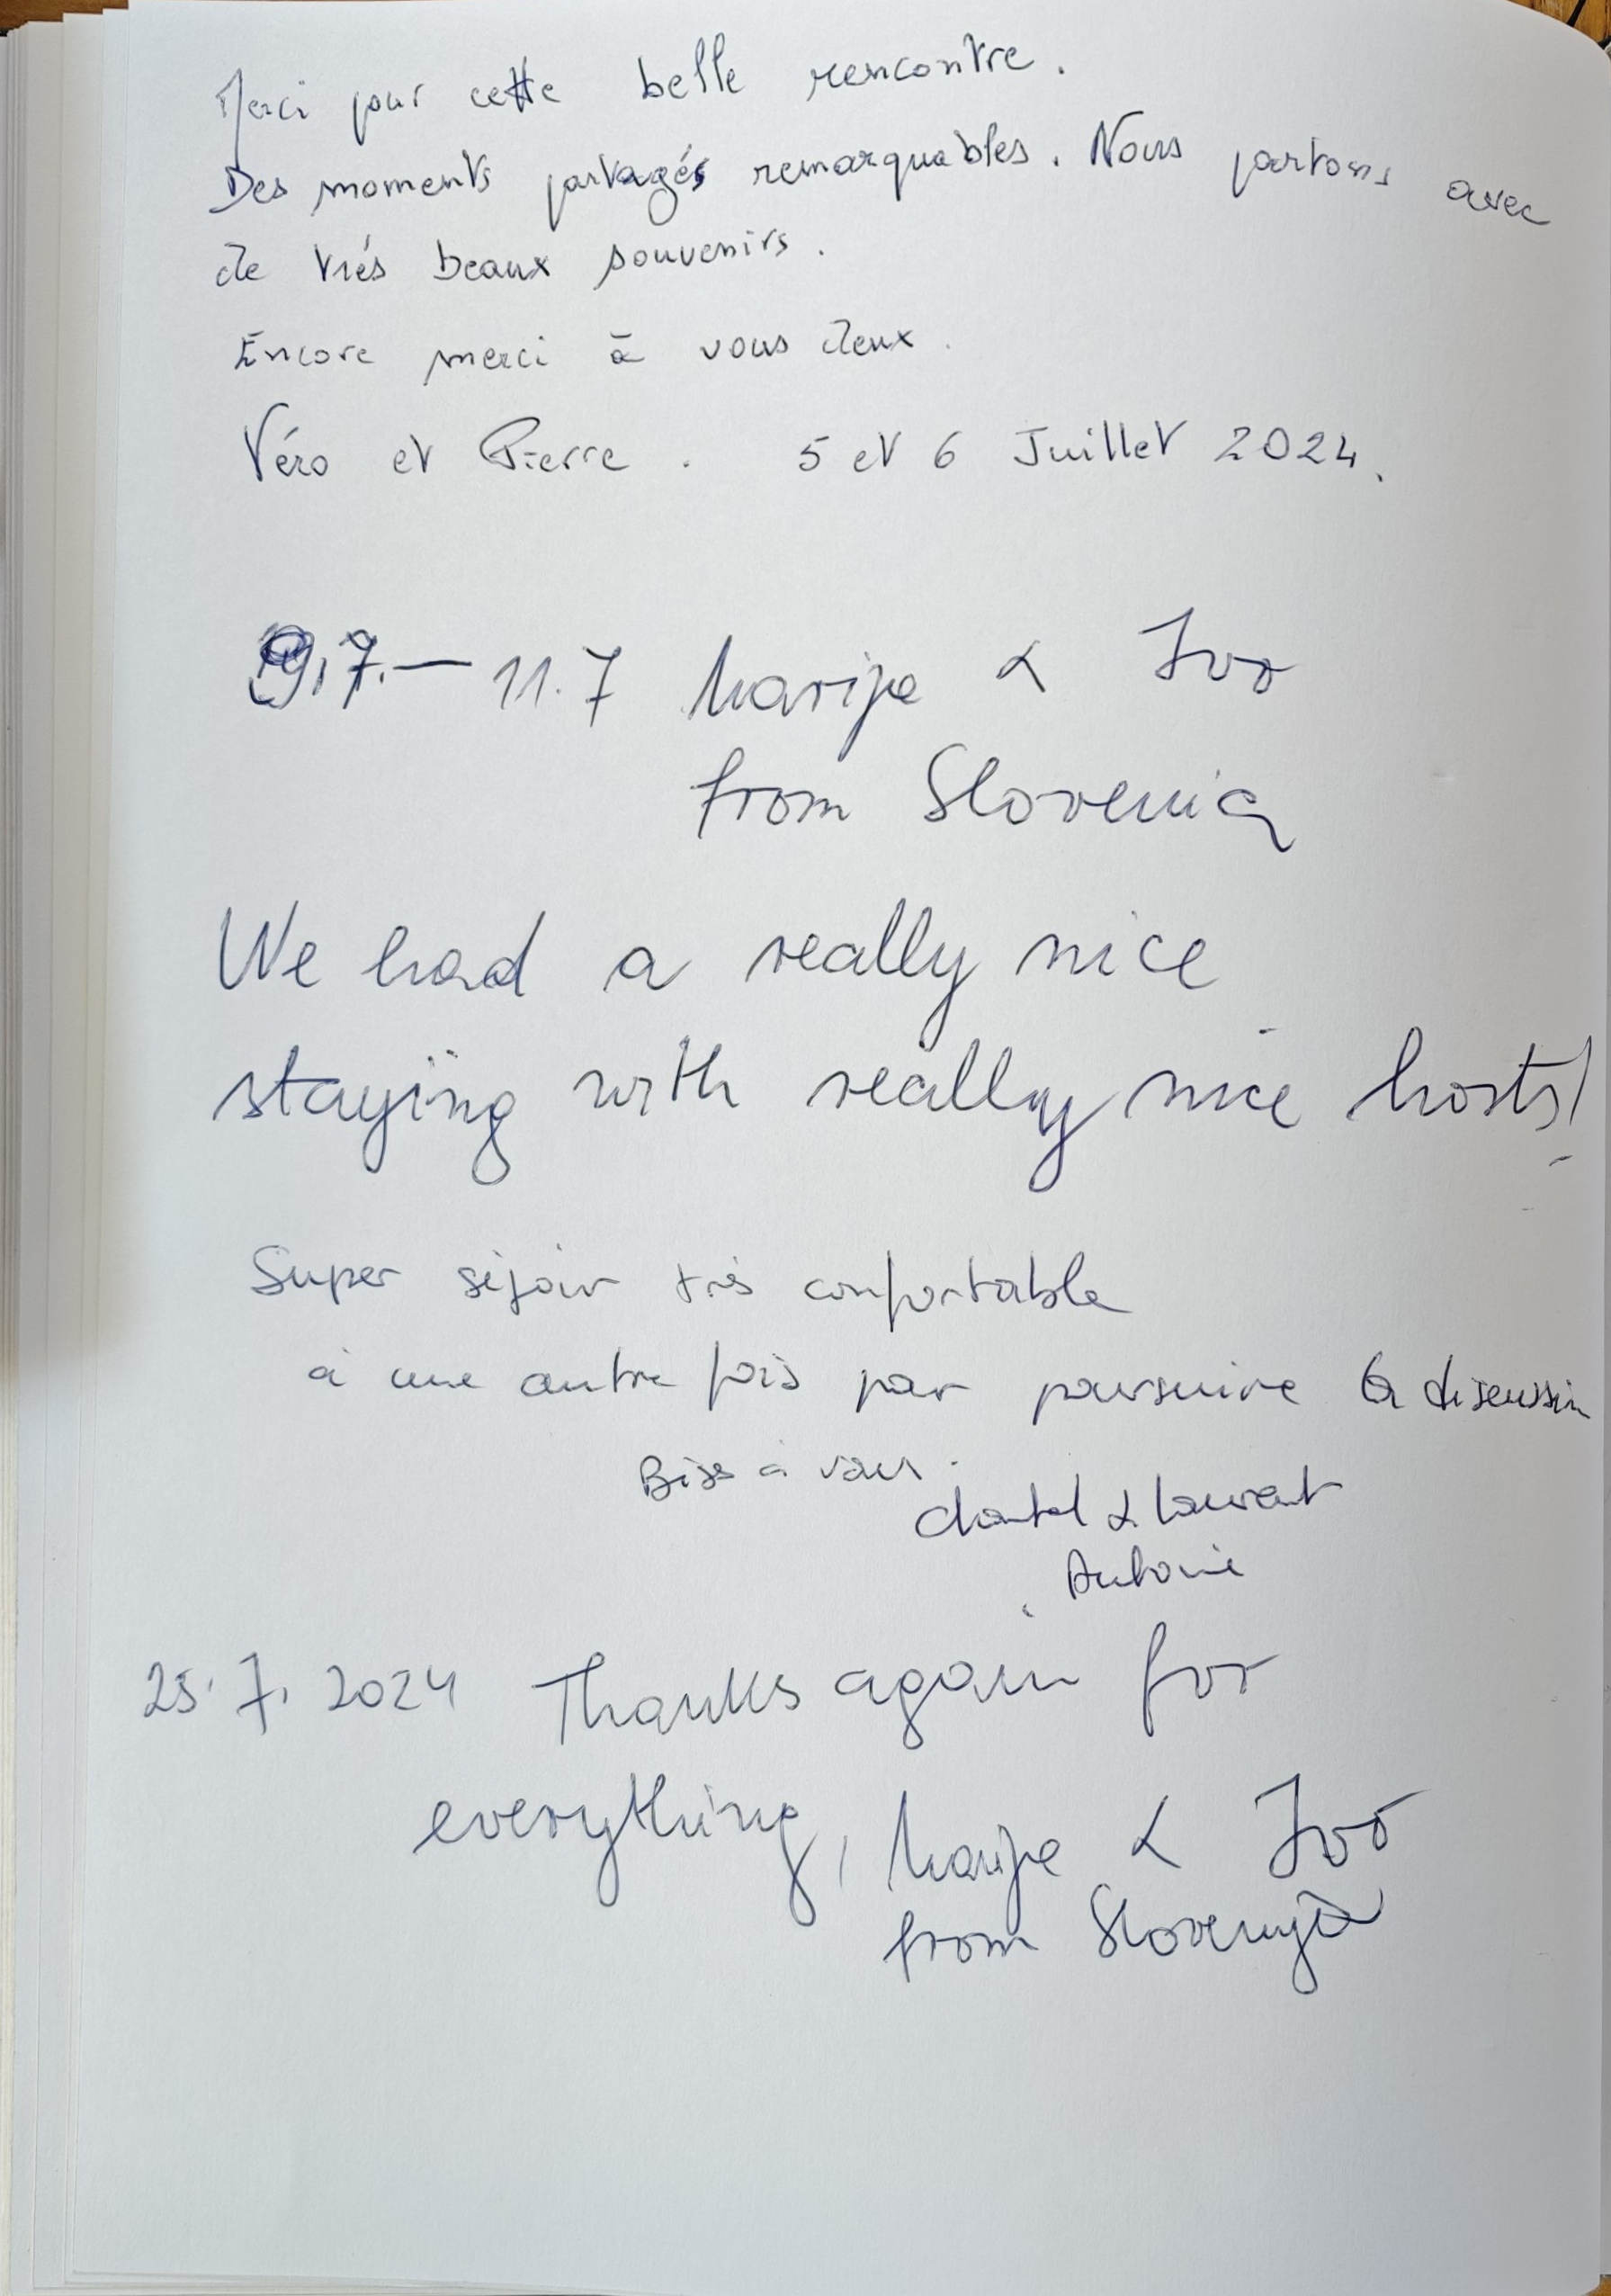 Merci pour cette belle rencontre.
Des moments partagés remarquables. Nous partons avec
de très beaux souvenirs.
Encore merci à vous deux.
Véro et Pierre. 5 et 6 Juillet 2024.
9.7. — 11.7 Marija & Ivo
from Slovenia
We had a really nice
staying with really nice hosts!
Super séjour très confortable
à une autre fois pour poursuivre la discussion
Bises à vous.
Chantal & Laurent
Antoine
25.7.2024 Thanks again for
everything, Marija & Ivo
from Slovenija